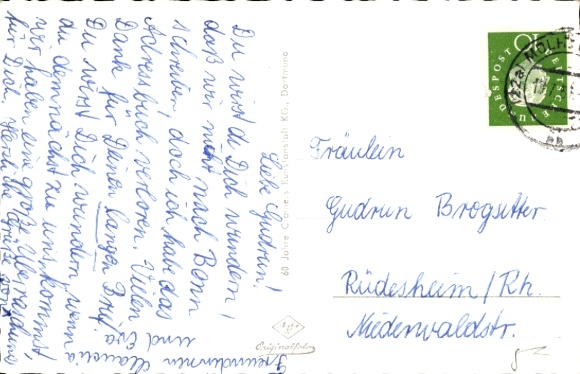 Liebe Gudrun!
Du wirst Dich wundern,
daß wir nicht nach Bonn
schreiben, doch ich hab das
Adressbuch verloren. Vielen
Dank für Deinen langen Brief.
Du wirst Dich wundern, wenn
du demnächst zu uns kommst,
wir haben eine große Überraschung
für Dich. Herzliche Grüße von
Freundinnin Claudia
und Eva
60 Jahre Cramers Kunstanstalt KG., Dortmund
Agfa
Originalfoto
DEUTSCHE
BUNDESPOST
10
22a
Fräulein
Gudrun Brogsitter
Rüdesheim/Rh.
Niederwaldstr.